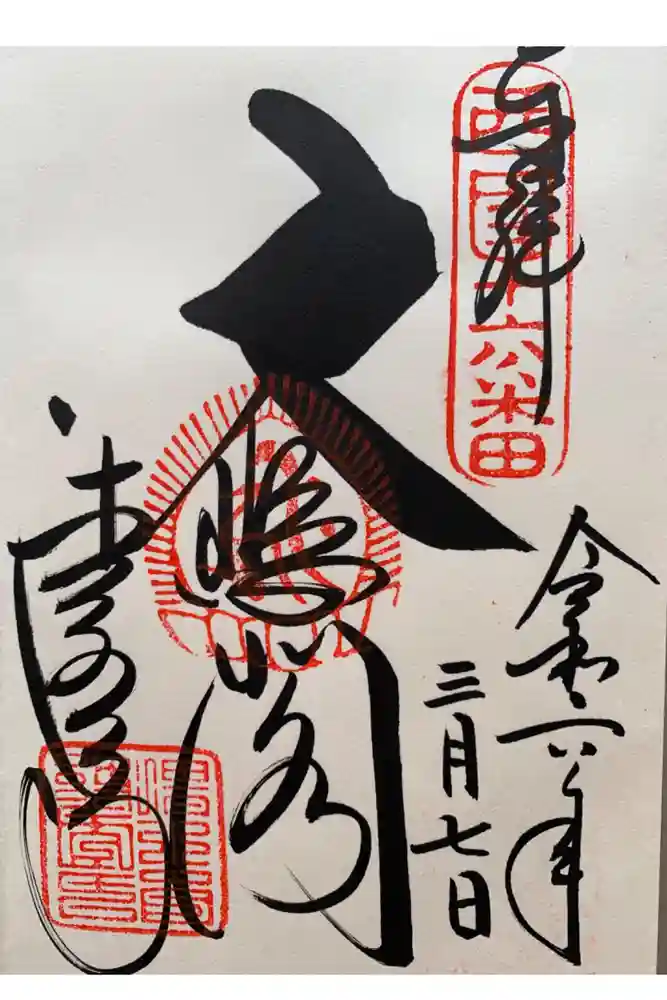 奉拝
西国十六番
令和六年
三月七日
大悲閣
清水寺